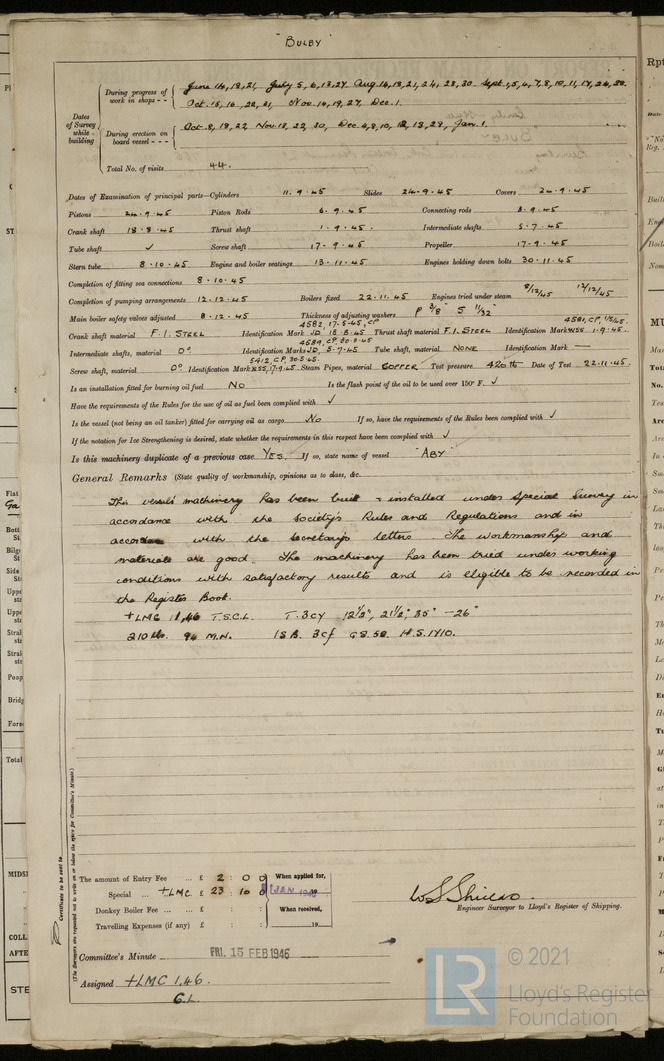 "BULBY"
Dates of Survey while building
During progress of work in shops - - June 14, 18, 21, July 5, 6, 13, 27 Aug 14, 18, 21, 24, 28, 30 Sept 1, 5, 6, 7, 8, 10, 11, 17, 24, 28.
Oct. 15, 16, 22, 31, Nov. 14, 19, 27, Dec. 1.
During erection on board vessel - - - Oct. 8, 19, 22, Nov. 13, 22, 30, Dec. 4, 8, 10, 12, 13, 29, Jan. 1.
Total No. of visits 44.
Dates of Examination of principal parts—Cylinders 11.9.45 Slides 24.9.45 Covers 24.9.45
Pistons 24.9.45 Piston Rods 6.9.45 Connecting rods 8.9.45
Crank shaft 18.8.45 Thrust shaft 1.9.45. Intermediate shafts 5.7.45
Tube shaft ✓ Screw shaft 17.9.45 Propeller 17.9.45
Stern tube 8.10.45 Engine and boiler seatings 13.11.45 Engines holding down bolts 30.11.45
Completion of fitting sea connections 8.10.45
Completion of pumping arrangements 12.12.45 Boilers fixed 22.11.45 Engines tried under steam 8/12/45 12/12/45
Main boiler safety valves adjusted 8.12.45 Thickness of adjusting washers P 3/8" S 11/32"
Crank shaft material F.I. STEEL Identification Mark 4582, 17.5.45, CP JD 18.8.45 Thrust shaft material F.I. STEEL Identification Mark 4581, CP, WSS 1.9.45.
Intermediate shafts, material Do Identification Marks 4584, CP, 30.5.45 JD, 5.7.45 Tube shaft, material NONE Identification Mark —
Screw shaft, material Do Identification Mark 5412, CP, 30.5.45. WSS, 17.9.45. Steam Pipes, material COPPER Test pressure 420 lb Date of Test 22.11.45.
Is an installation fitted for burning oil fuel NO Is the flash point of the oil to be used over 150° F. ✓
Have the requirements of the Rules for the use of oil as fuel been complied with ✓
Is the vessel (not being an oil tanker) fitted for carrying oil as cargo No If so, have the requirements of the Rules been complied with ✓
If the notation for Ice Strengthening is desired, state whether the requirements in this respect have been complied with ✓
Is this machinery duplicate of a previous case YES. If so, state name of vessel "ABY"
General Remarks (State quality of workmanship, opinions as to class, &c.
This vessel's machinery has been built & installed under Special Survey in
accordance with the Society's Rules and Regulations and in
accordance with the Secretary's letters. The workmanship and
materials are good. The machinery has been tried under working
conditions with satisfactory results and is eligible to be recorded in
the Register Book.
+LMC 1,46 T.S.C.L. T.3cy 12½", 21½", 35" — 26"
210 lbs. 96 M.N. 1SB. 3cf GS.58 H.S.1710.
(The Surveyors are requested not to write on or below the space for Committee's Minute.)
Certificate to be sent to
The amount of Entry Fee ... £ 2 : 0 : 0
Special ... +LMC £ 23 : 10 : 0
Donkey Boiler Fee ... ... £ : :
Travelling Expenses (if any) £ : :
When applied for,
JAN 1946
When received,
19
W S Shields.
Engineer Surveyor to Lloyd's Register of Shipping.
Committee's Minute FRI. 15 FEB 1946
Assigned +LMC 1,46.
C.L.
LR
© 2021
Lloyd's Register
Foundation